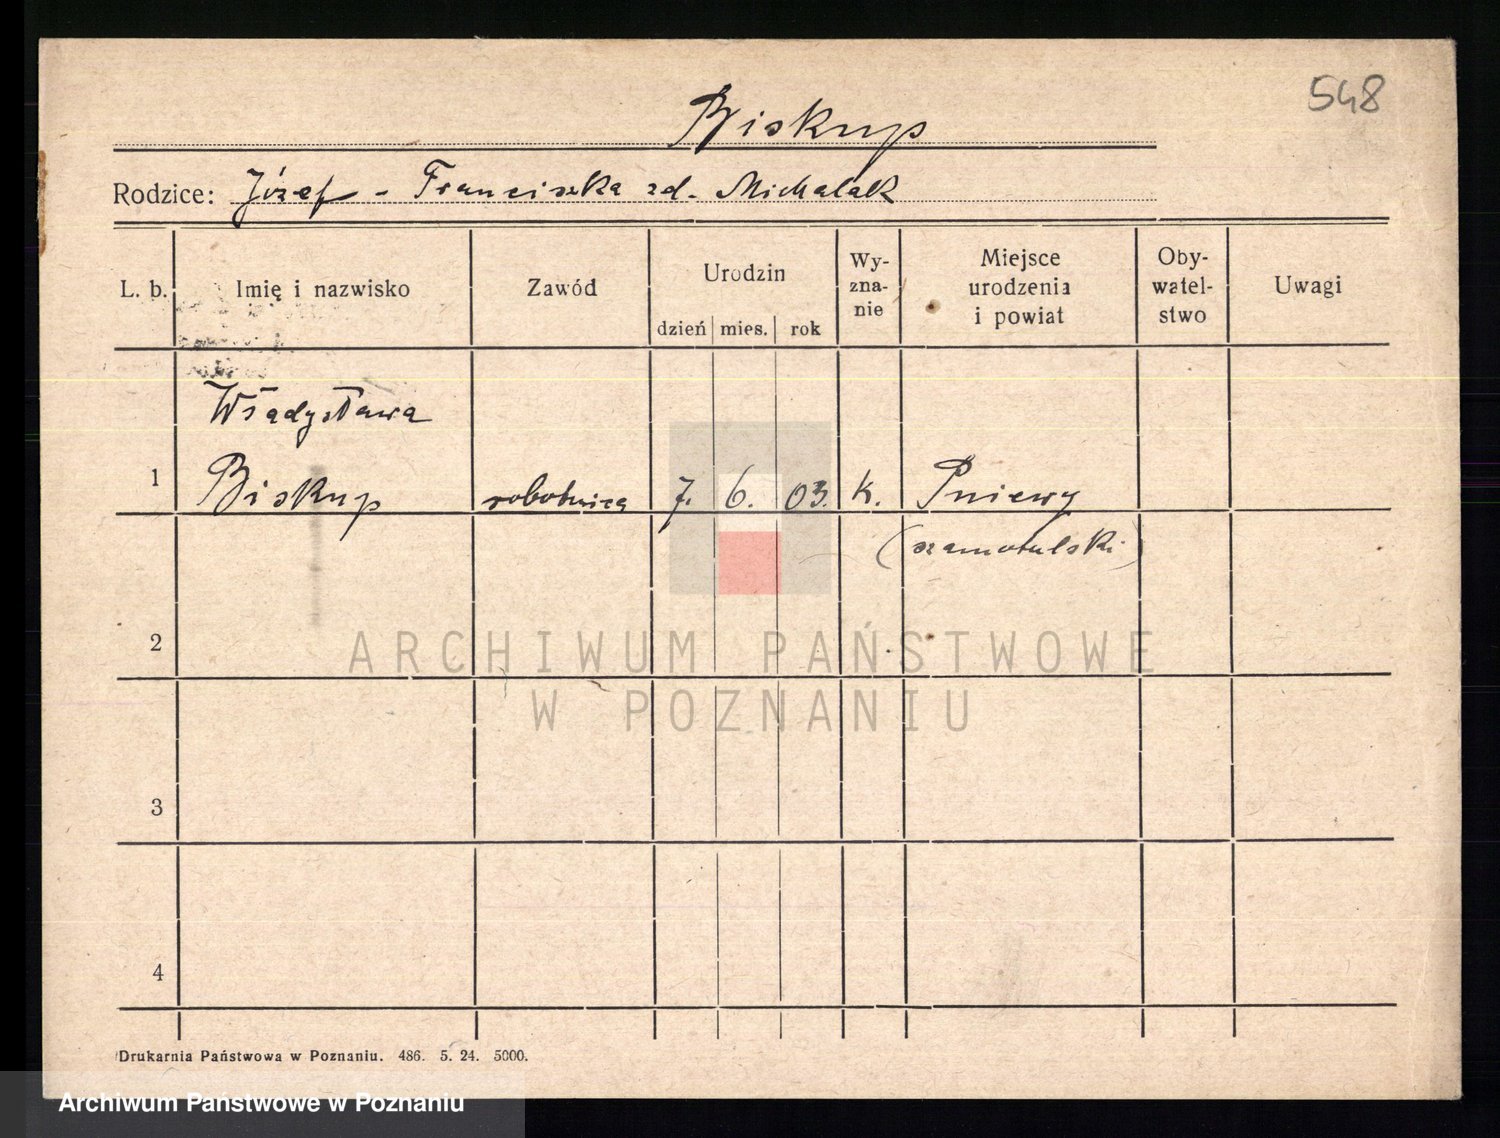 548
Biskup
Rodzice: Józef - Franciszka zd. Michalak
L. b.
Imię i nazwisko
Zawód
Urodzin
dzień mies. rok
Wy-
zna-
nie
Miejsce
urodzenia
i powiat
Oby-
watel-
stwo
Uwagi
Władysława
1 Biskup robotnica 7. 6. 03. k. Pniewy
(szamotulski)
2
ARCHIWUM PAŃSTWOWE
W POZNANIU
3
4
Drukarnia Państwowa w Poznaniu. 486. 5. 24. 5000.
Archiwum Państwowe w Poznaniu